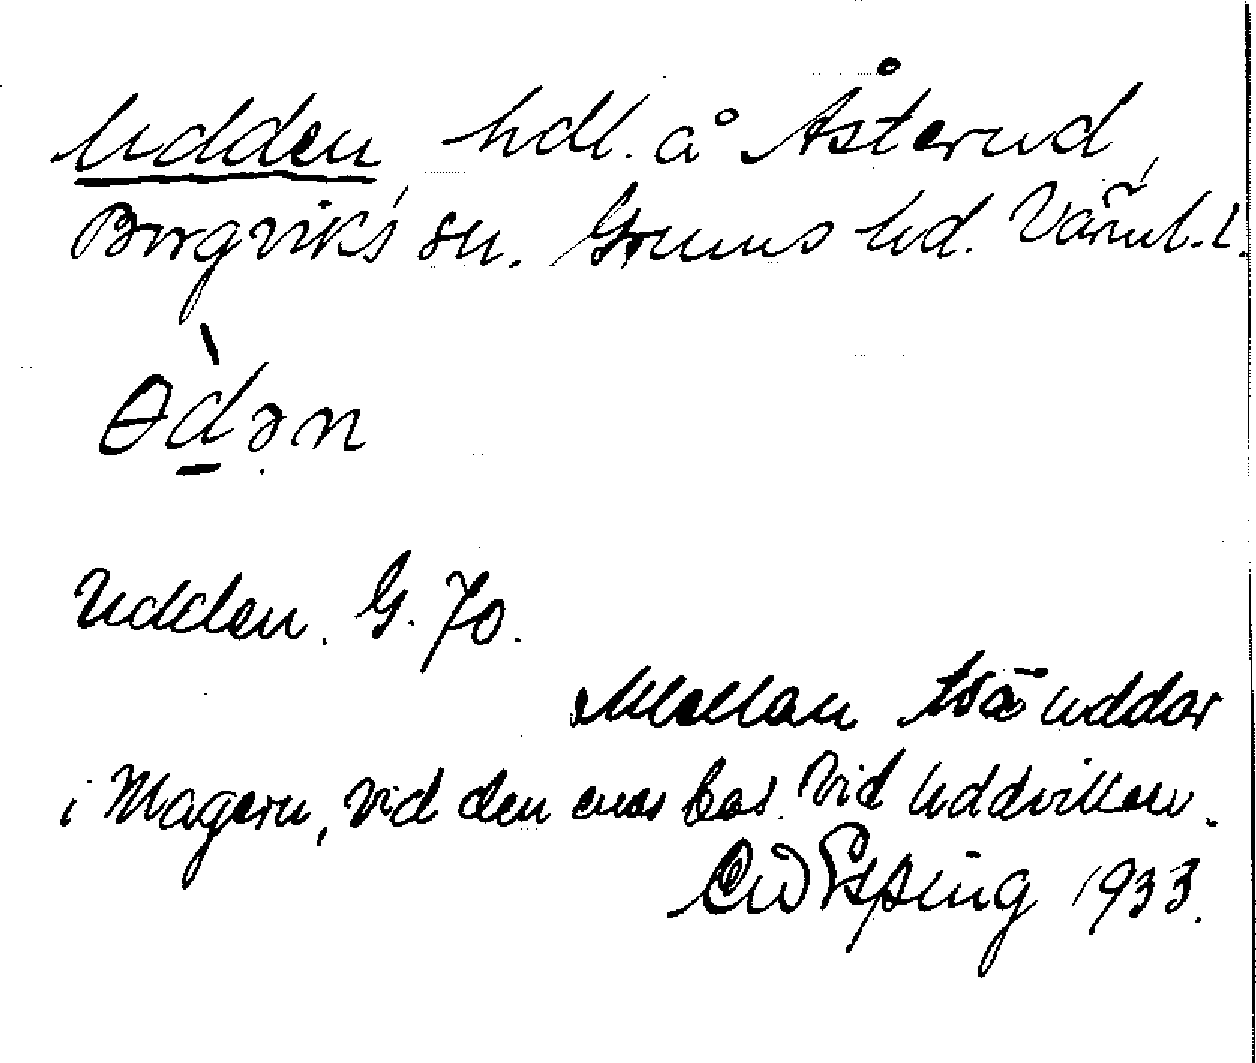 Udden hdl. å Åsterud,
Borgviks sn. Grums hd. Värml. l.
ɵ̀d̲ən
Udden. G. 70.
Mellan två uddar
i Magern, vid den enas bas. Vid Uddviken.
Espling 1933.